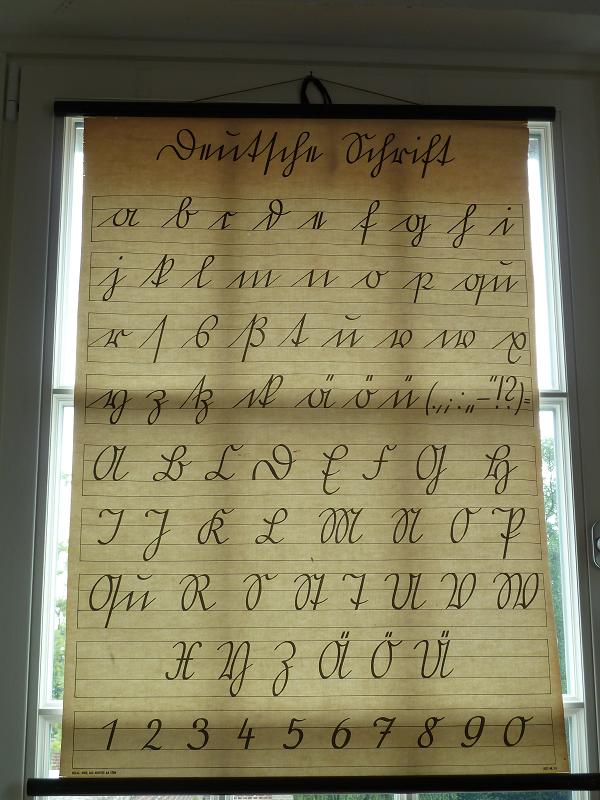 Deutsche Schrift
a b c d e f g h i
j k l m n o p qu
r ſ s ß t u v w x
y z tz ck ä ö ü (.,;:„–"!?)=
A B C D E F G H
I J K L M N O P
Qu R S St T U V W
X Y Z Ä Ö Ü
1 2 3 4 5 6 7 8 9 0